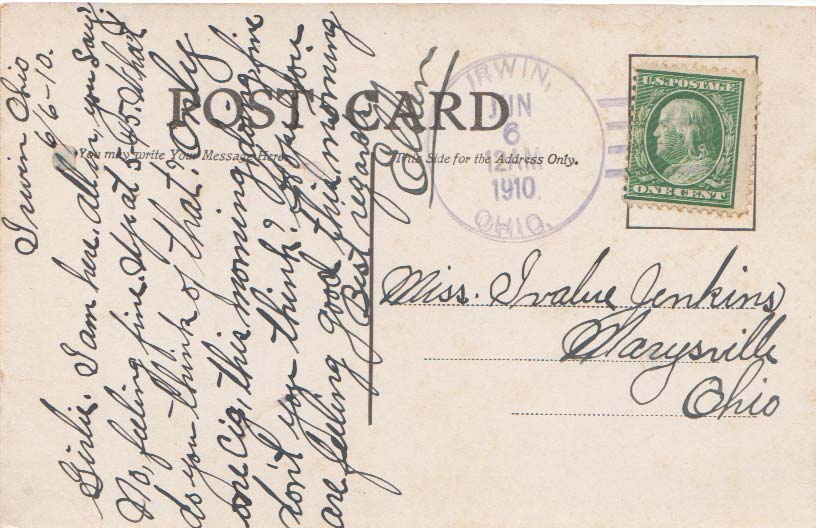 POST CARD
You may write Your Message Here.
This Side for the Address Only.
IRWIN,
JUN
6
12AM
1910
OHIO.
U.S. POSTAGE
ONE CENT
Irwin Ohio
6/6-10.
Girlie. I am here. All in, you say?
No, feeling fine. Up at 5-45. What
do you think of that? Only
one Cig, this morning, doing fine
don't you think? Hope you
are feeling good this morning
Best regards
Miss. Ivalue Jenkins
Marysville
Ohio